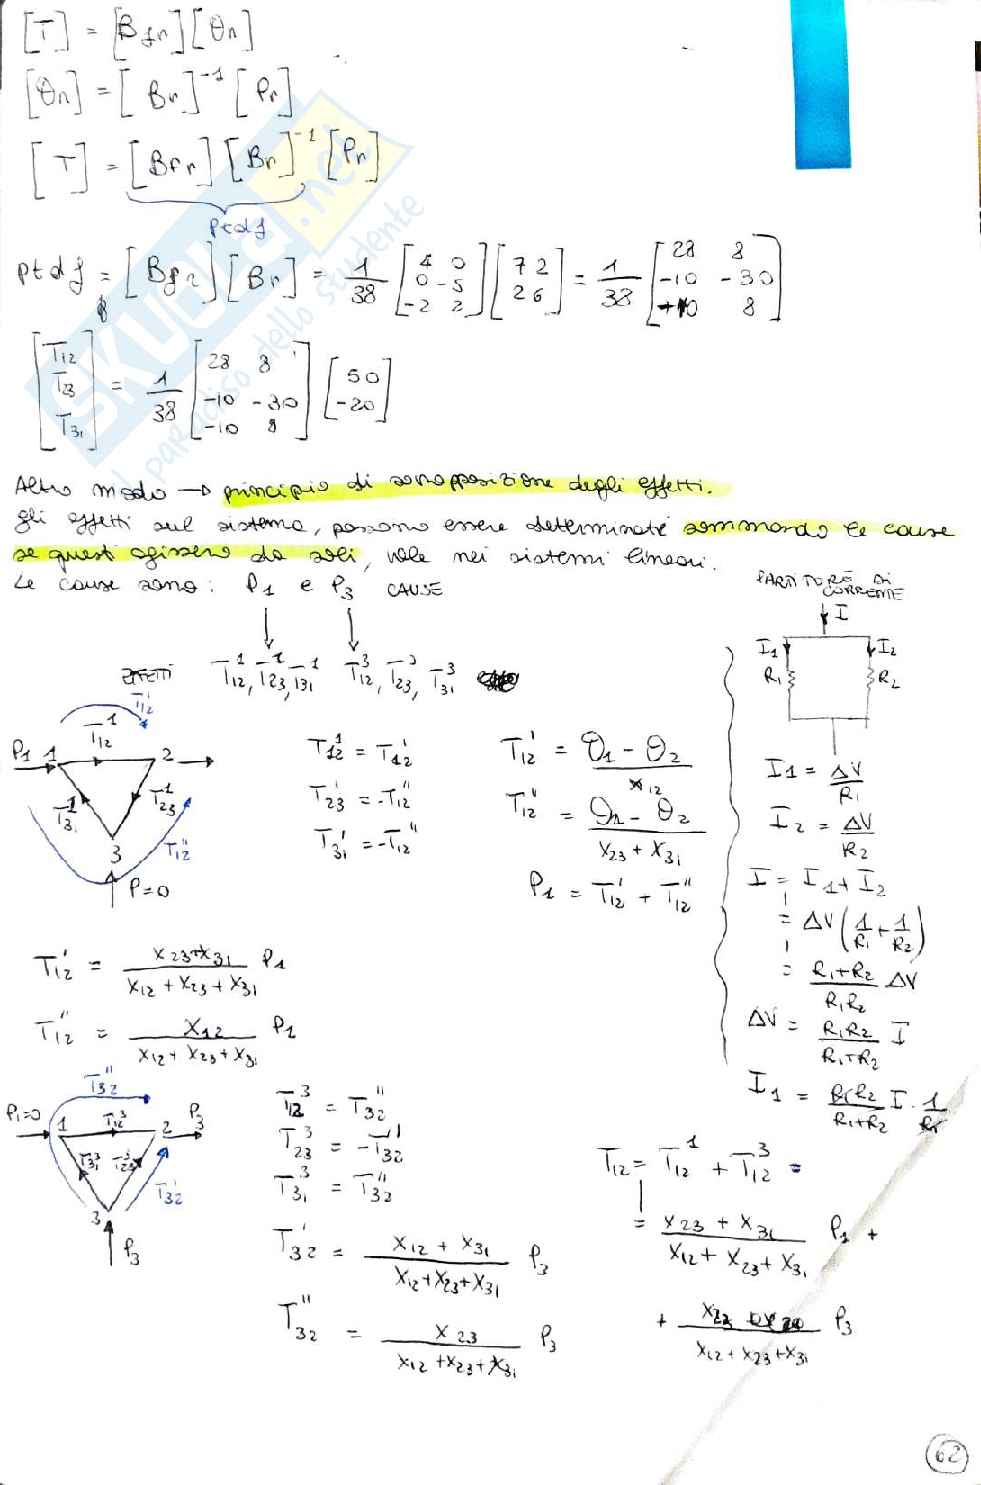 [T] = [Bfr] [θn]
[θn] = [Br]⁻¹ [Pr]
[T] = [Bfr] [Br]⁻¹ [Pr]
ptdf
ptdf = [Bfr] [Br] = 1/38 [4 0; 0 -5; -2 2] [7 2; 2 6] = 1/38 [28 8; -10 -30; -10 8]
[T12; T23; T31] = 1/38 [28 8; -10 -30; -10 8] [50; -20]
Altro modo → principio di sovrapposizione degli effetti.
gli effetti sul sistema, possono essere determinate sommando le cause
se questi agissero da soli, vale nei sistemi lineari.
Le cause sono: P1 e P3 CAUSE
EFFETTI T12¹, T23¹, T31¹ T12³, T23³, T31³
PARTITORE DI
CORRENTE
I
I1 I2
R1 R2
T12'
T12¹
P1 1 2
T31¹ T23¹
T12''
3
P=0
T12¹ = T12'
T23¹ = -T12''
T31¹ = -T12''
T12' = θ1 - θ2 / x12
T12'' = θ1 - θ2 / x23 + x31
P1 = T12' + T12''
I1 = ΔV / R1
I2 = ΔV / R2
I = I1 + I2
= ΔV (1/R1 + 1/R2)
= R1+R2 / R1R2 ΔV
ΔV = R1R2 / R1+R2 I
I1 = R1R2 / R1+R2 I · 1/R1
T12' = x23+x31 / x12 + x23 + x31 P1
T12'' = x12 / x12 + x23 + x31 P1
T32''
P1=0 1 T12³ 2 P3
T31³ T23³
T32'
3
P3
T12³ = T32''
T23³ = -T32'
T31³ = T32''
T32' = x12 + x31 / x12+x23+x31 P3
T32'' = x23 / x12+x23+x31 P3
T12 = T12¹ + T12³ =
= x23 + x31 / x12 + x23 + x31 P1 +
+ x23 / x12 + x23 + x31 P3
62
SKUOLA.net
il paradiso dello studente